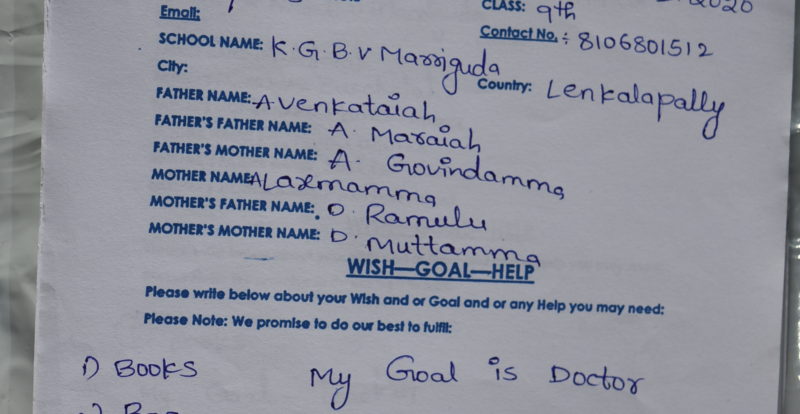 2020
Email: CLASS: 9th
Contact No. : 8106801512
SCHOOL NAME: K.G.B.V Marriguda
City: Country: Lenkalapally
FATHER NAME: A Venkataiah
FATHER'S FATHER NAME: A. Maraiah
FATHER'S MOTHER NAME: A. Govindamma
MOTHER NAME A Laxmamma
MOTHER'S FATHER NAME: D. Ramulu
MOTHER'S MOTHER NAME: D. Muttamma
WISH—GOAL—HELP
Please write below about your Wish and or Goal and or any Help you may need:
Please Note: We promise to do our best to fulfil:
1) Books My Goal is Doctor